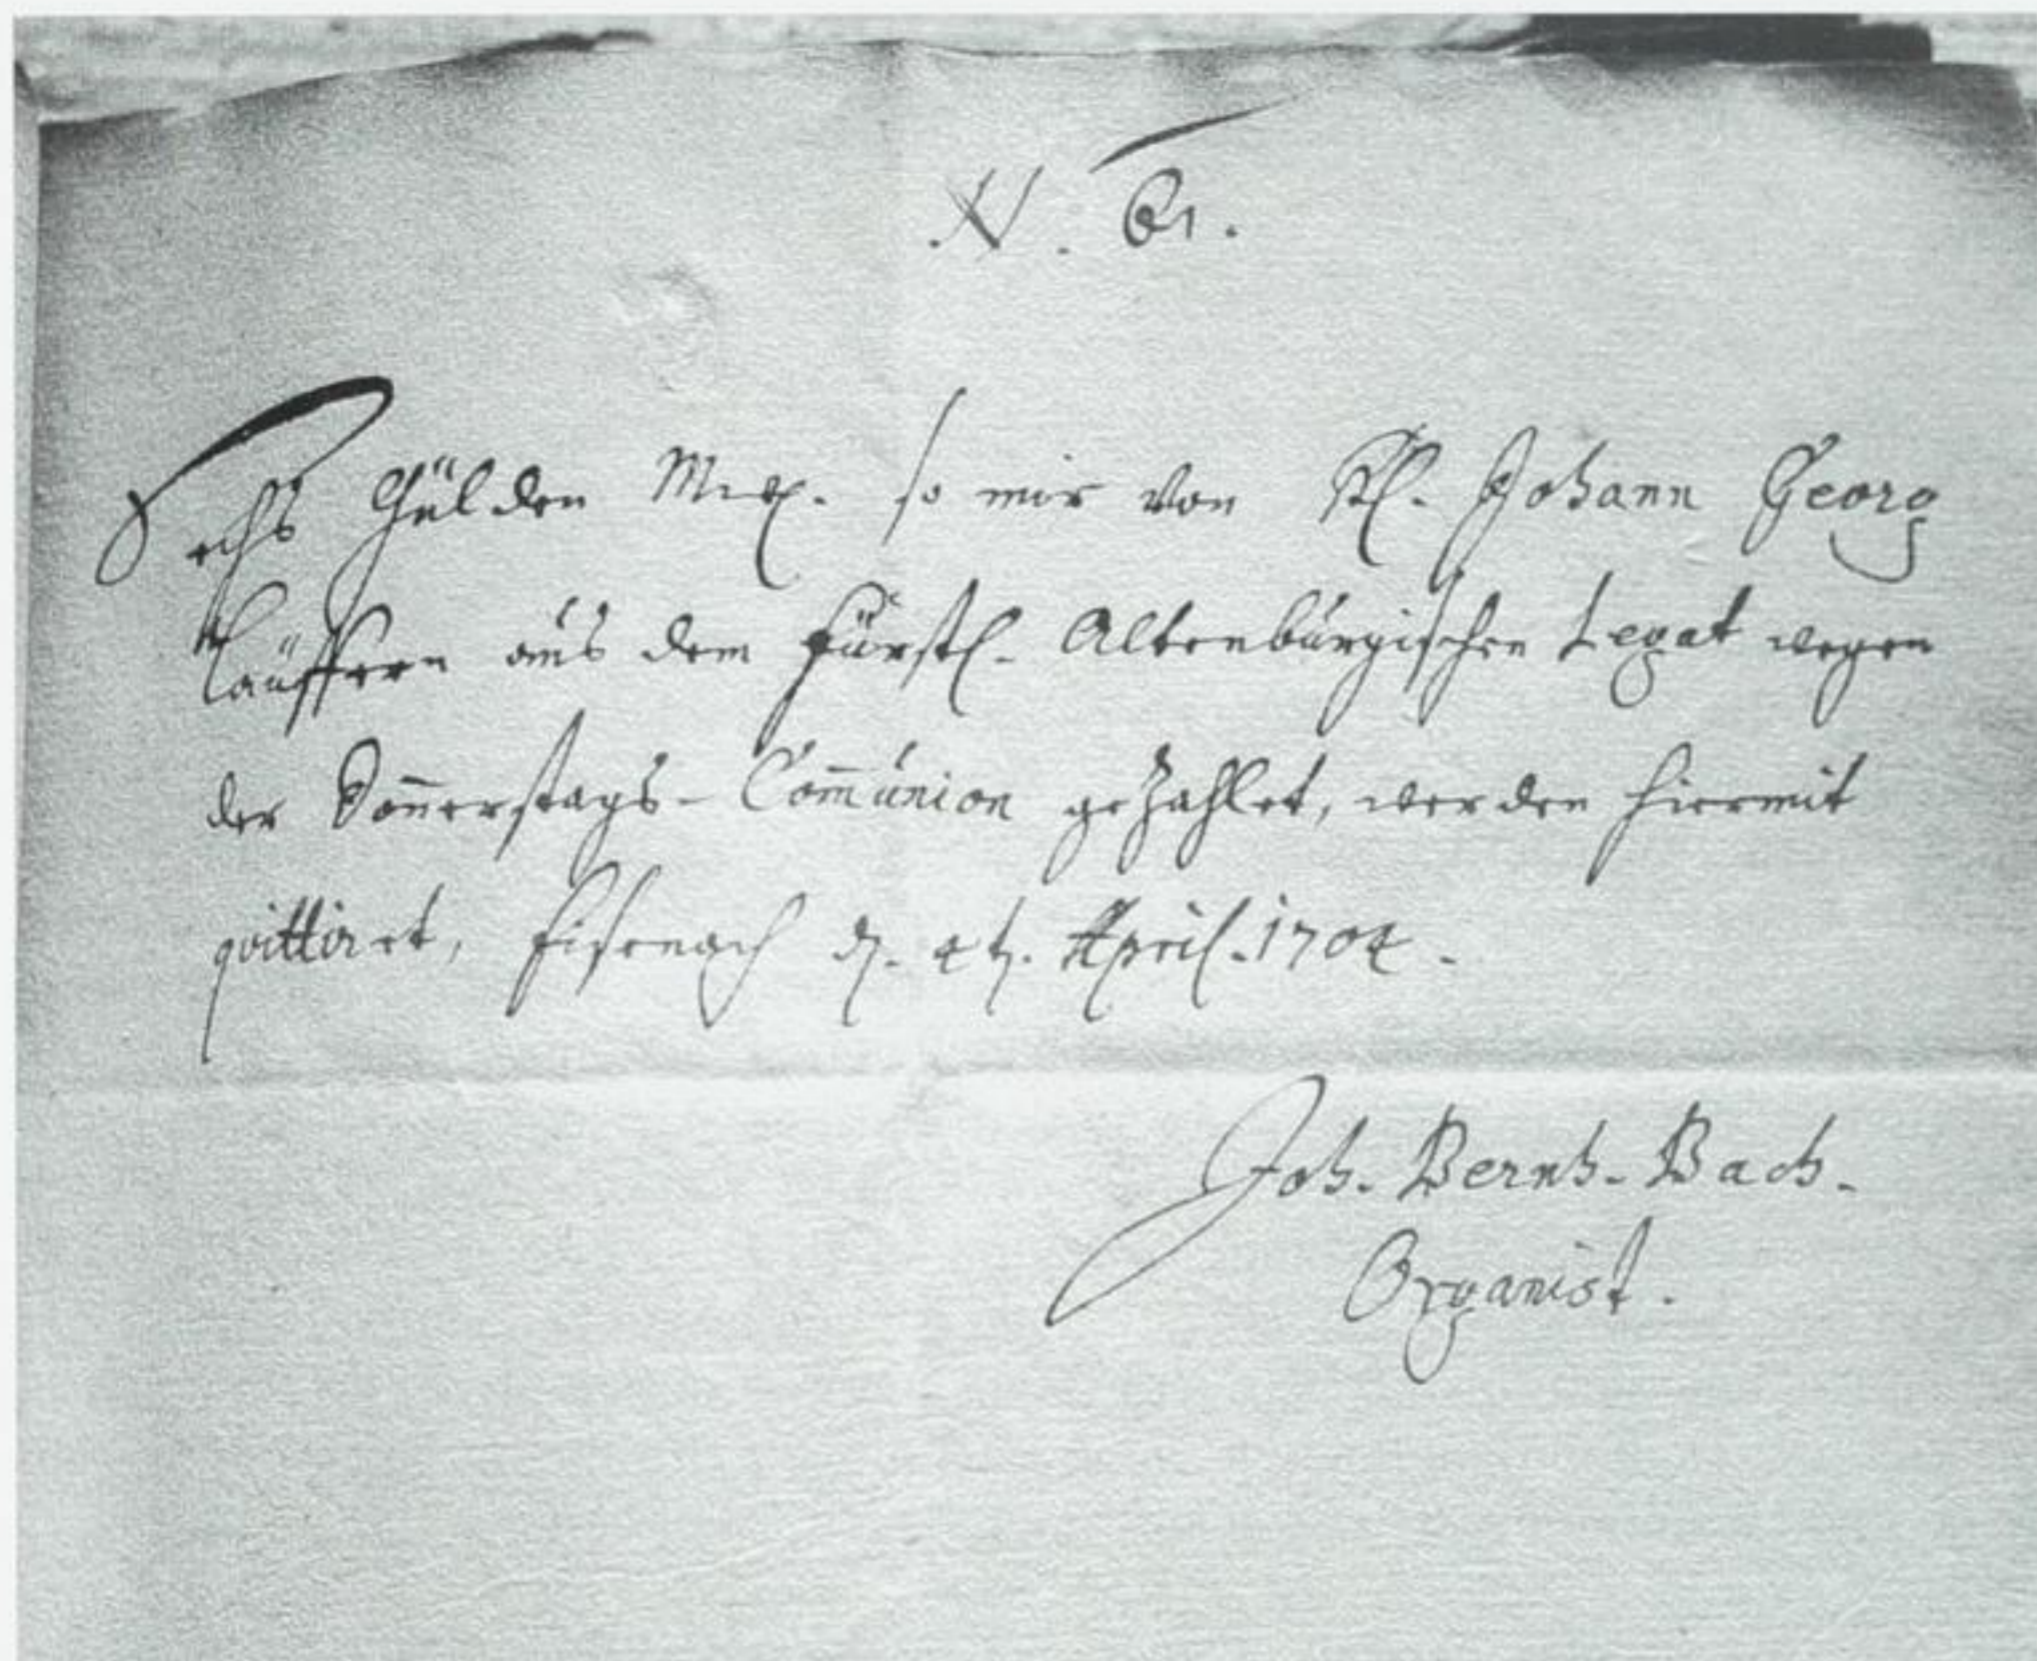 N. 61.
Sechs Gülden Mßl. so mir von Tl. Johann Georg
Läuffern aus dem Fürstl. Altenburgischen Legat wegen
der Don̄erstags-Com̄union gezahlet, werden hiermit
qvittiret, Eisenach d. 4t. April. 1704.
Joh. Bernh. Bach.
Organist.